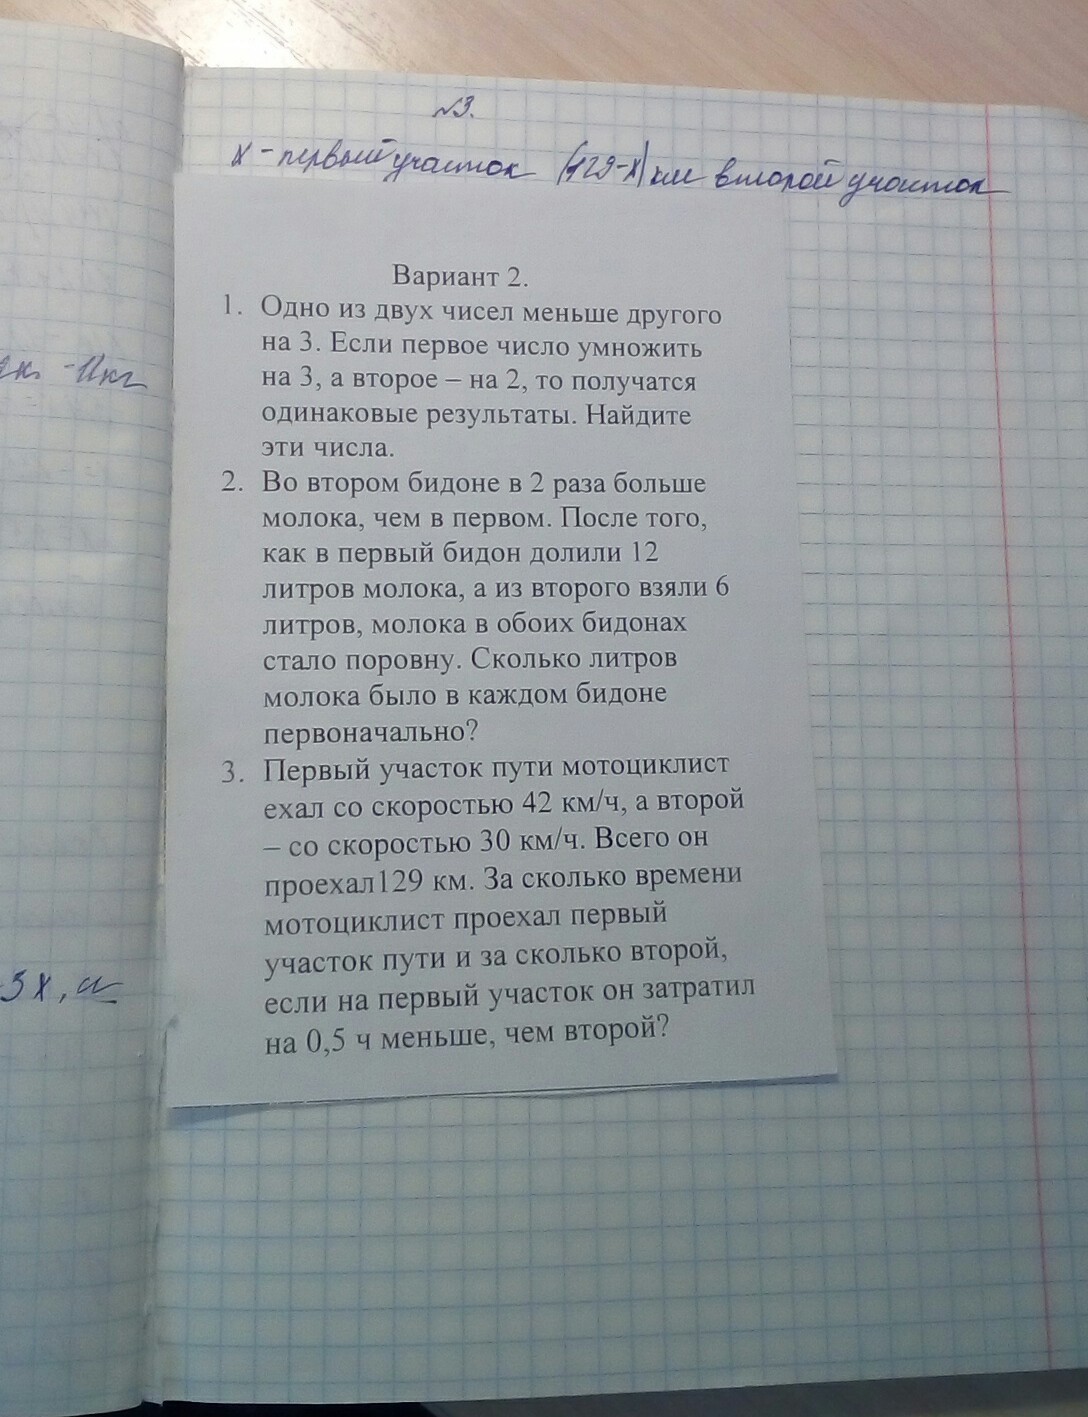 №3.
х - первый участок (129-х) км второй участок
Вариант 2.
1. Одно из двух чисел меньше другого
на 3. Если первое число умножить
на 3, а второе – на 2, то получатся
одинаковые результаты. Найдите
эти числа.
2. Во втором бидоне в 2 раза больше
молока, чем в первом. После того,
как в первый бидон долили 12
литров молока, а из второго взяли 6
литров, молока в обоих бидонах
стало поровну. Сколько литров
молока было в каждом бидоне
первоначально?
3. Первый участок пути мотоциклист
ехал со скоростью 42 км/ч, а второй
– со скоростью 30 км/ч. Всего он
проехал129 км. За сколько времени
мотоциклист проехал первый
участок пути и за сколько второй,
если на первый участок он затратил
на 0,5 ч меньше, чем второй?
3х, и